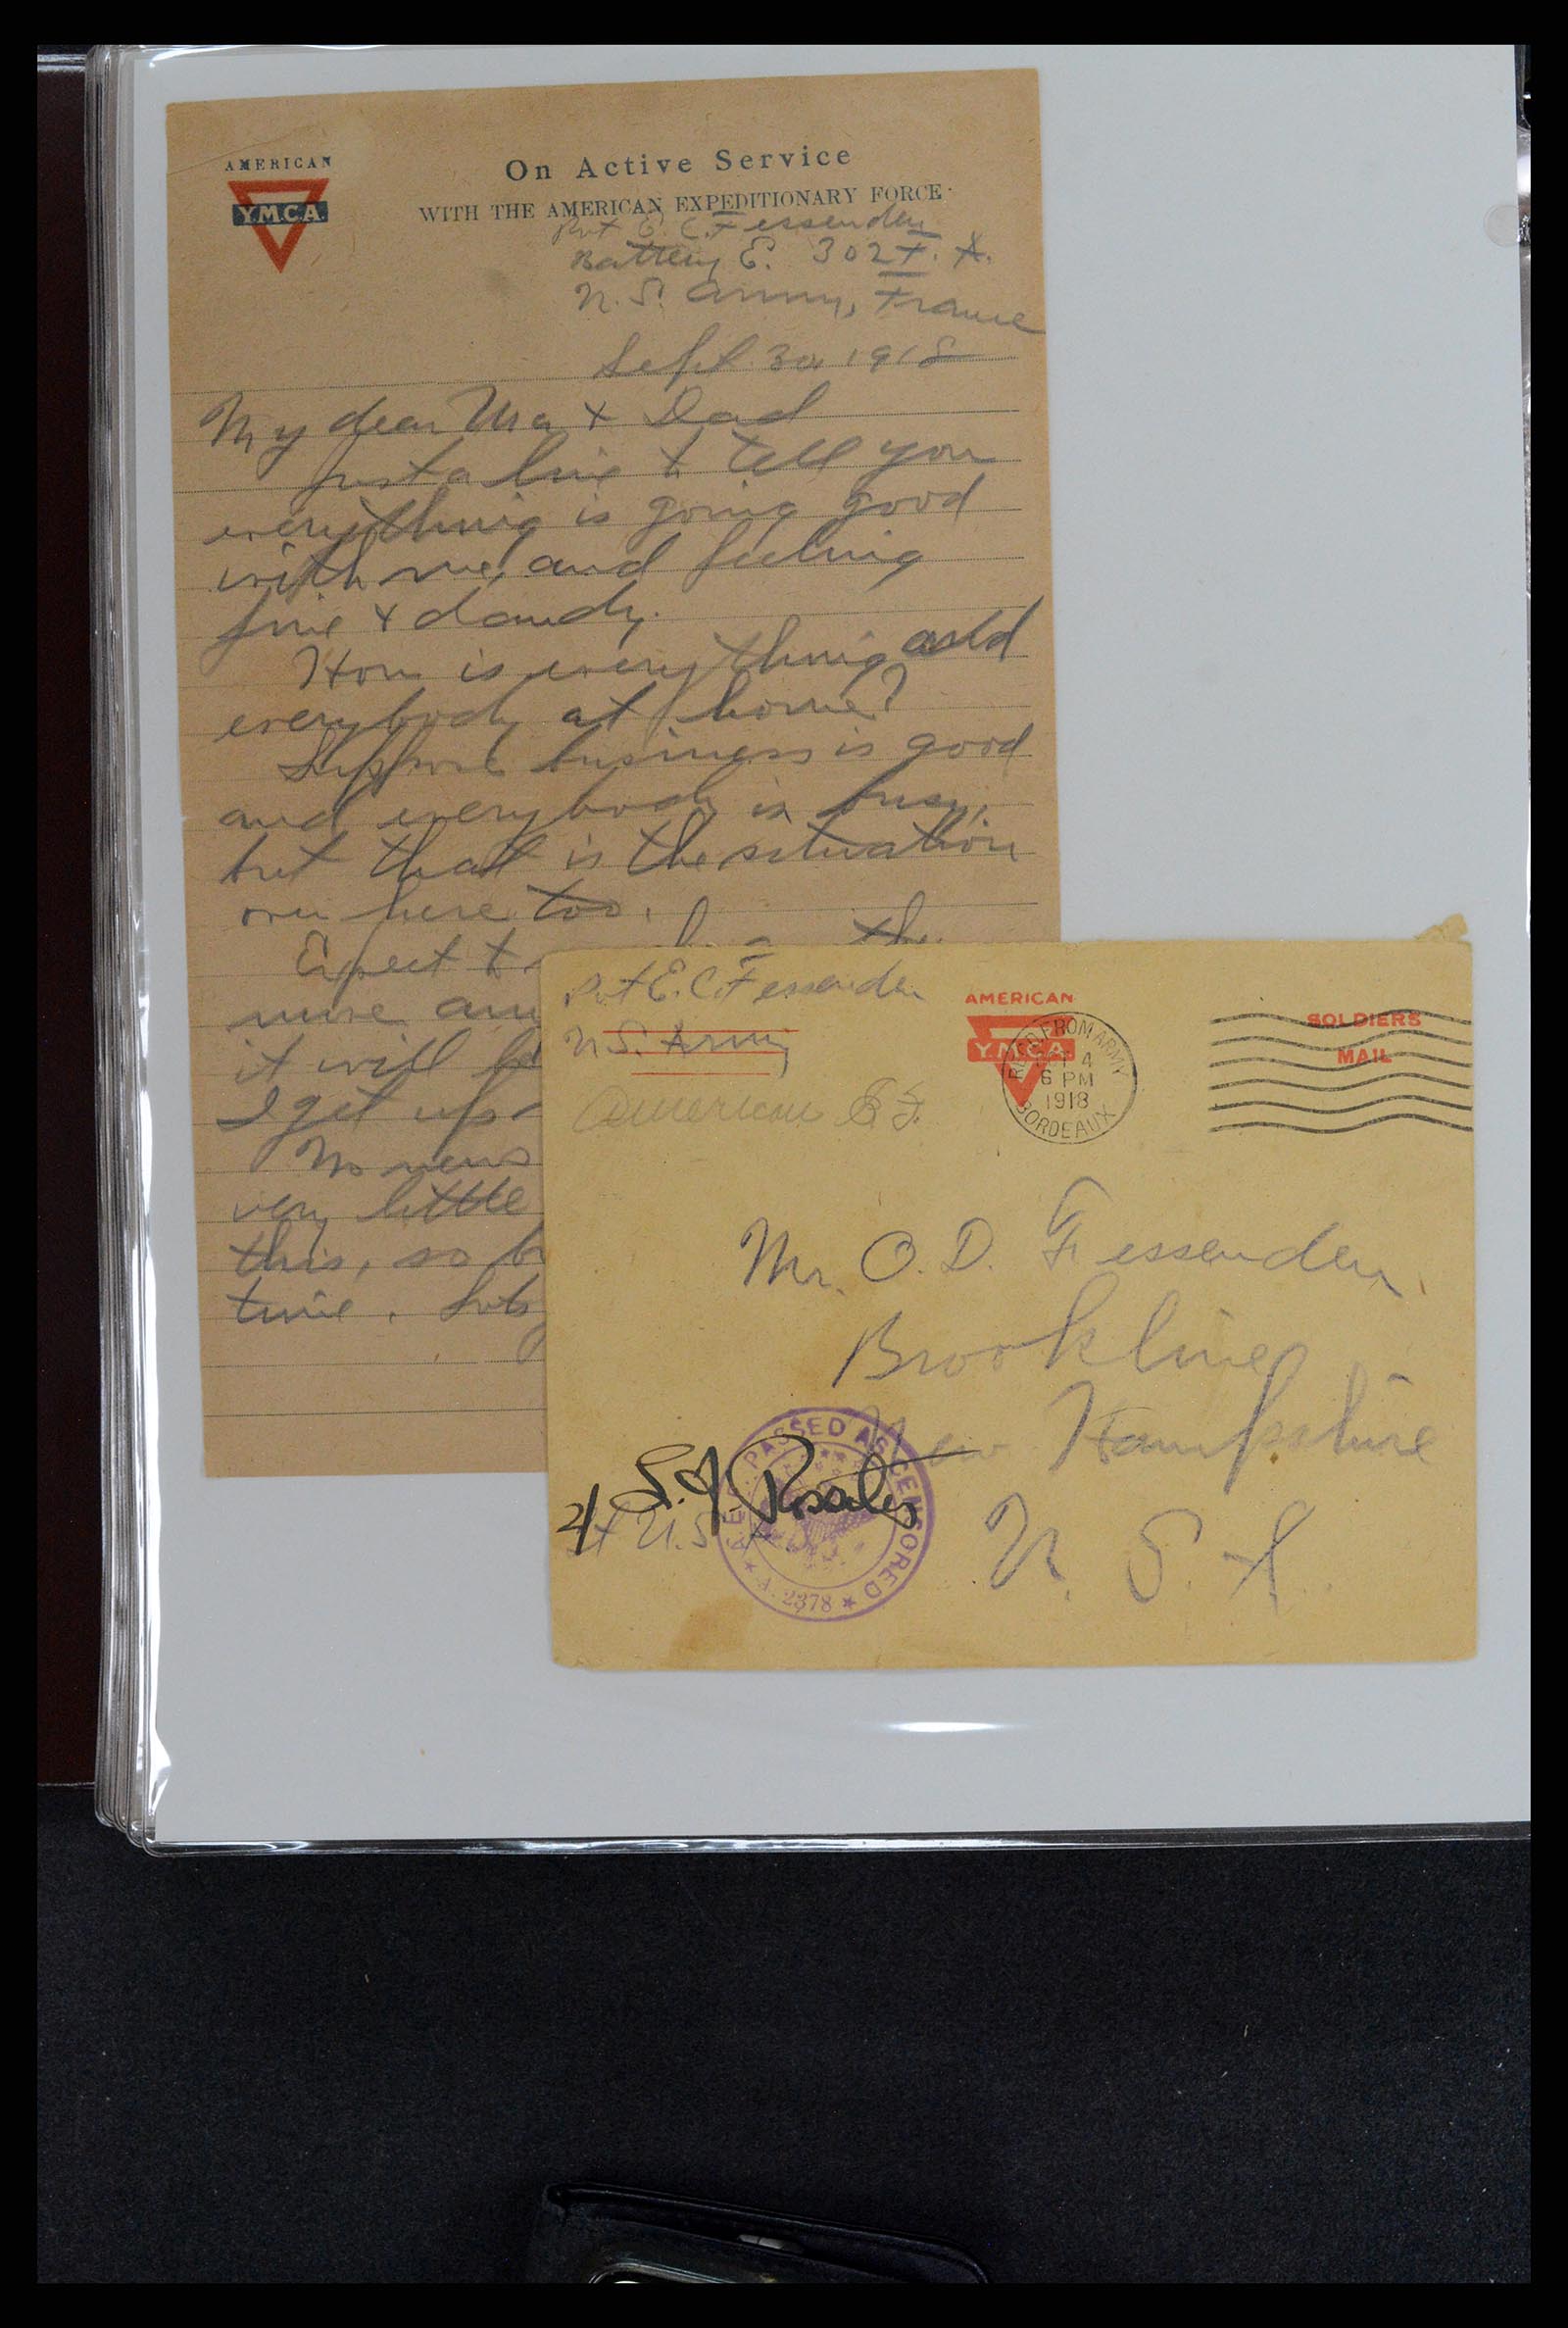 AMERICAN
Y.M.C.A.
On Active Service
WITH THE AMERICAN EXPEDITIONARY FORCE
Pvt E. C. Fessenden
Battery E. 302 F. A.
U. S. Army, France
Sept 30 1918
My dear Ma & Dad
Just a line to tell you
everything is going good
with me, and feeling
fine & dandy.
How is everything and
everybody at home?
Suppose business is good
and everybody is busy,
but that is the situation
over here too.
Expect to
the
it will
I get up
No news
very little
this, so
time. Lots
Pvt E. C. Fessenden
U. S. Army
American E. F.
AMERICAN
Y.M.C.A.
REC'D FROM ARMY
4
6 PM
1918
BORDEAUX
SOLDIERS
MAIL
Mr. O. D. Fessenden
Brookline
New Hampshire
U. S. A
A.E.F. PASSED AS CENSORED
A. 2378
S. J. Rosales
U.S.